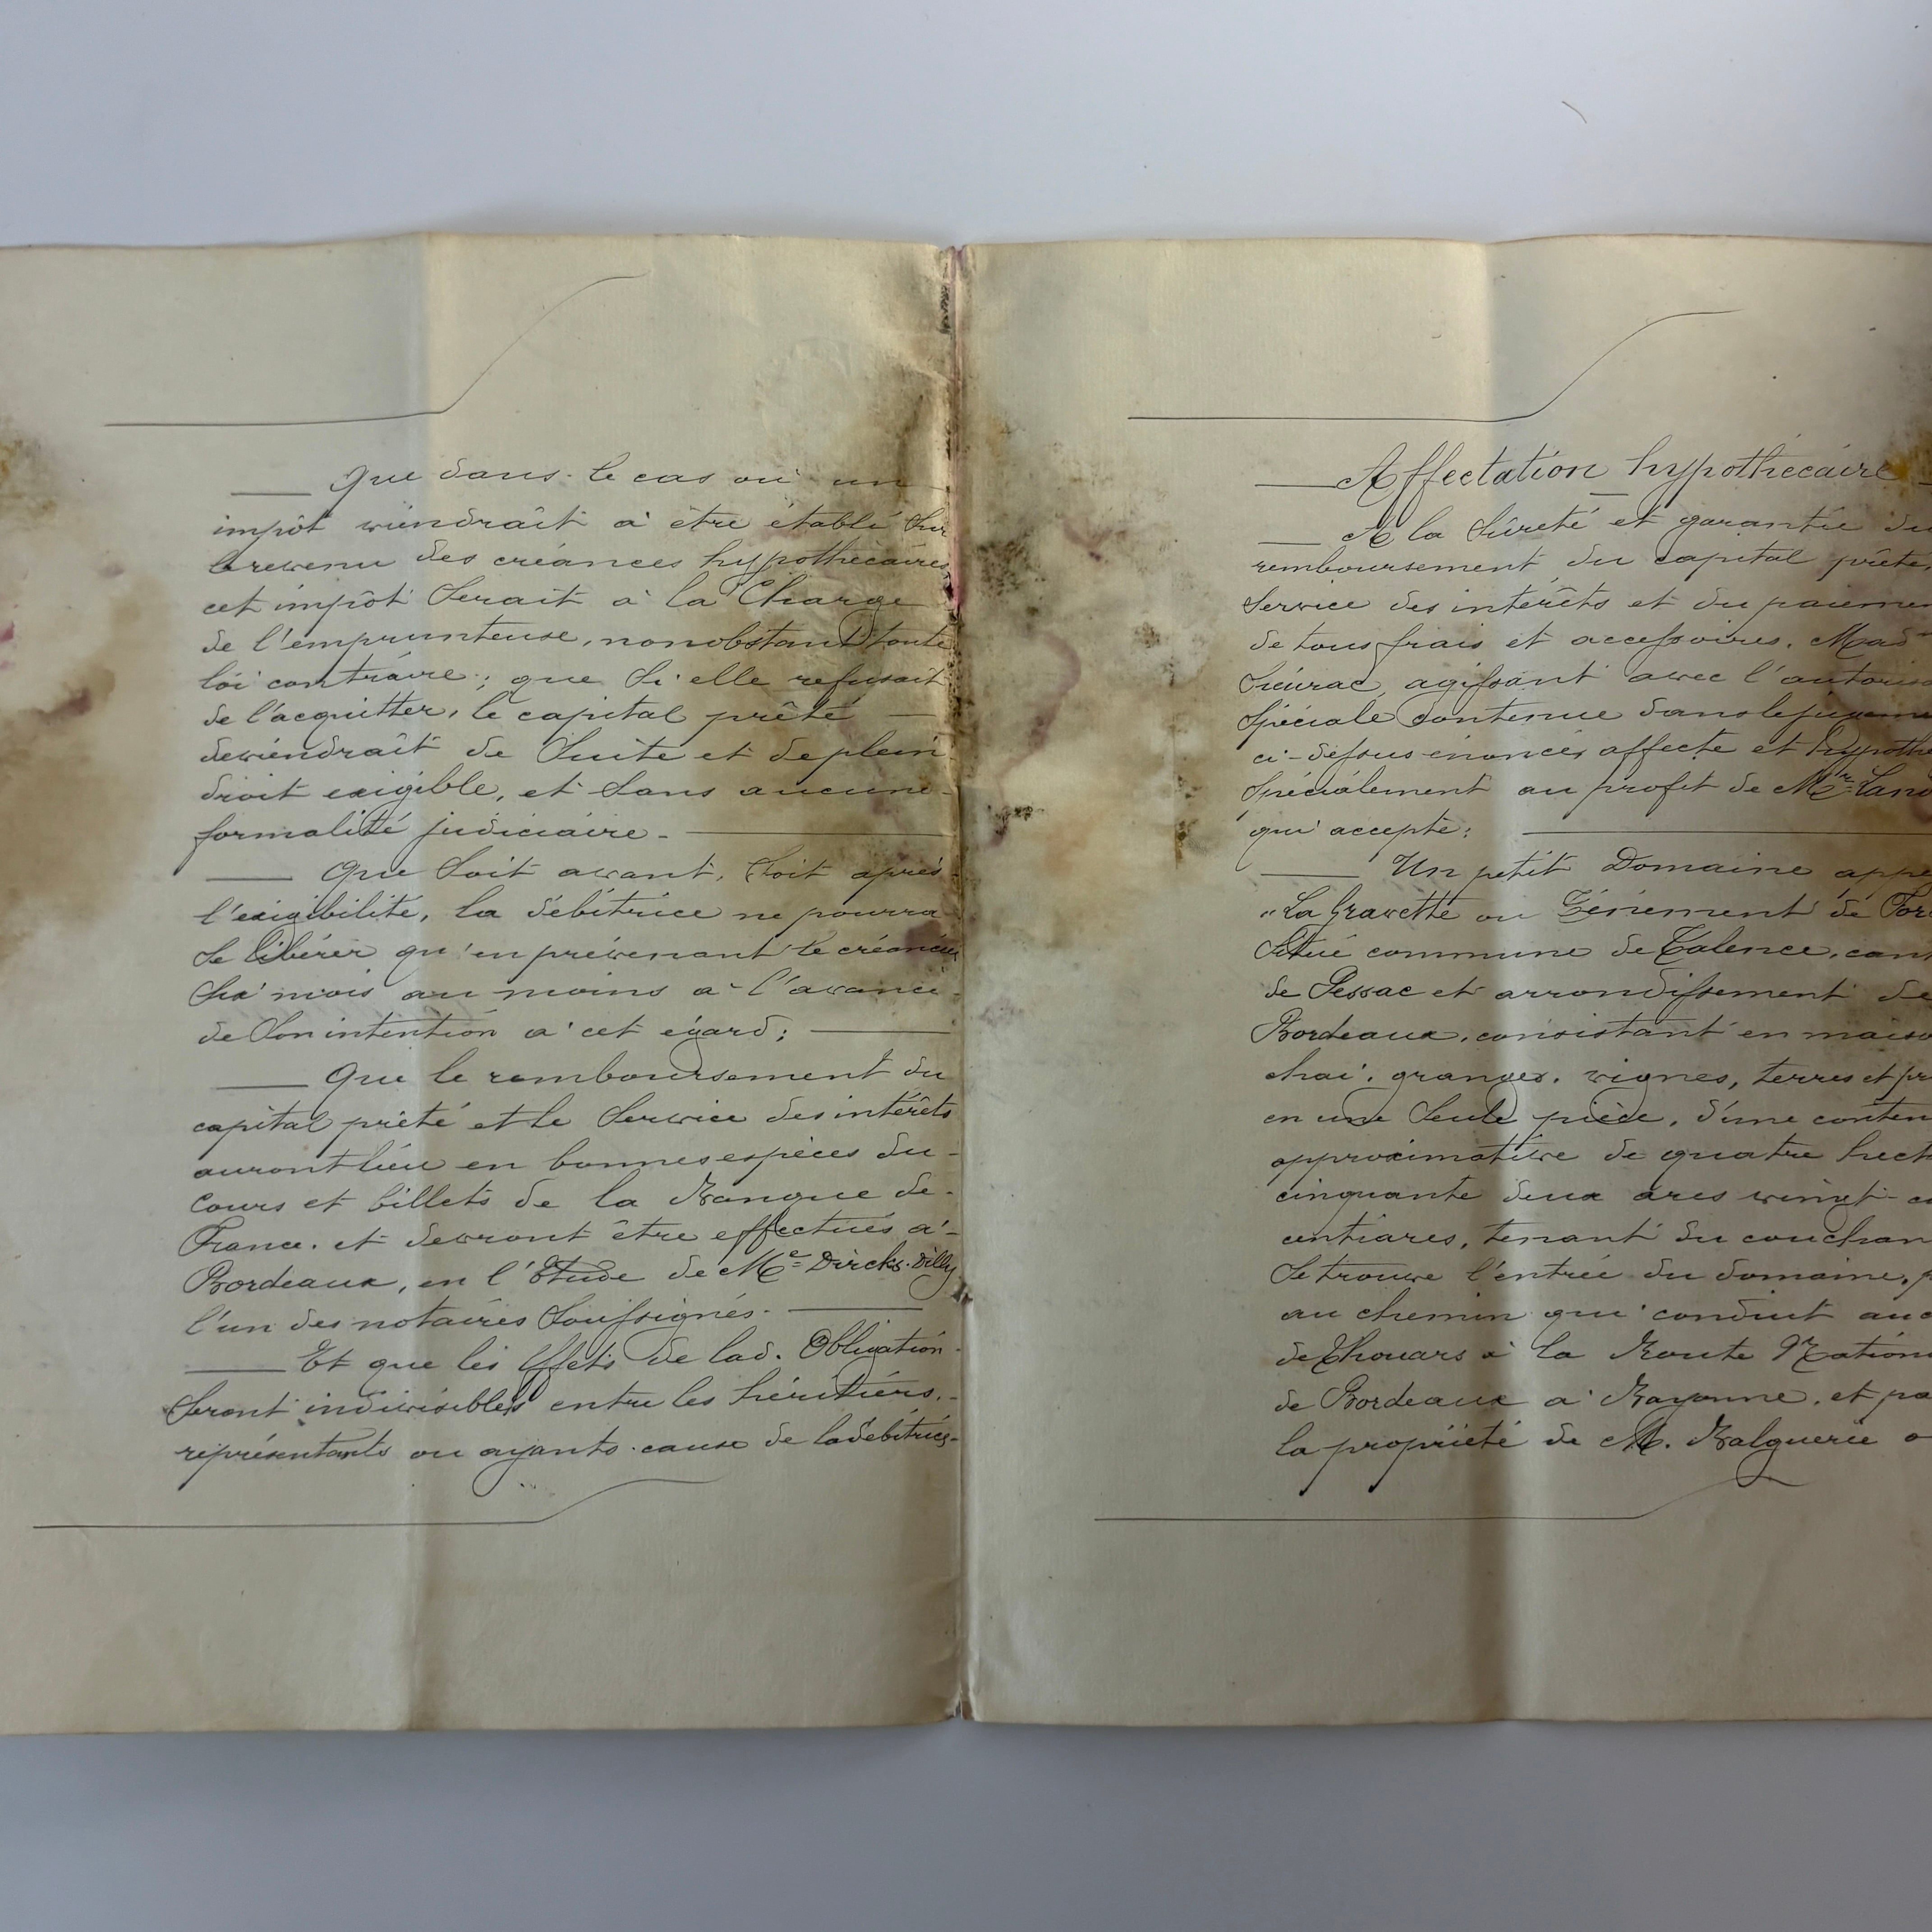 Que dans le cas où un
impôt viendrait à être établi sur
le revenu des créances hypothécaires
cet impôt serait à la charge
de l'emprunteuse, nonobstant toute
loi contraire; que si elle refusait
de l'acquitter, le capital prêté
deviendrait de suite et de plein
droit exigible, et sans aucune
formalité judiciaire.
Que soit avant, soit après
l'exigibilité, la débitrice ne pourra
se libérer qu'en prévenant le créancier
six mois au moins à l'avance
de son intention à cet égard;
Que le remboursement du
capital prêté et le service des intérêts
auront lieu en bonnes espèces du
cours et billets de la Banque de
France. et devront être effectués à
Bordeaux, en l'Etude de Me Dircks-Dilly
l'un des notaires soussignés.
Et que les effets de lad. Obligation
seront indivisibles entre les héritiers,
représentants ou ayants-cause de la débitrice
Affectation hypothécaire
A la sûreté et garantie du
remboursement du capital prêté,
service des intérêts et du paieme
de tous frais et accessoires, Mad
agissant avec l'autoris
spéciale contenue dans le jugeme
ci-dessus énoncé, affecte et hypothè
spécialement au profit de Mr
qui accepte:
Un petit Domaine appe
"La Gravette ou Ténement de
situé commune de Talence, cant
de Pessac et arrondissement de
Bordeaux, consistant en maiso
chai, granges, vignes, terres et pr
en une seule pièce, d'une conten
approximative de quatre hect
cinquante deux ares vingt-c
centiares, tenant du couchan
se trouve l'entrée du domaine, p
au chemin qui conduit au
de Thouars à la Route Nation
de Bordeaux à Bayonne, et pa
la propriété de M. Balguerie o